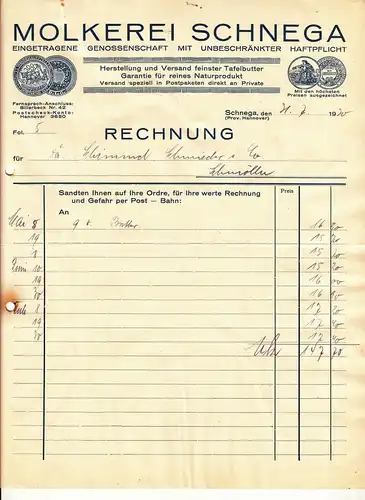 MOLKEREI SCHNEGA
EINGETRAGENE GENOSSENSCHAFT MIT UNBESCHRÄNKTER HAFTPFLICHT
Herstellung und Versand feinster Tafelbutter
Garantie für reines Naturprodukt
Versand speziell in Postpaketen direkt an Private
Fernsprech-Anschluss:
Billerbeck Nr. 42
Postscheck-Konto:
Hannover 3690
Mit den höchsten
Preisen ausgezeichnet
Schnega, den 31. 7. 1930
(Prov. Hannover)
Fol. 5
RECHNUNG
für Fa. Schimmel Schmieder & Co
Schmölln
Sandten Ihnen auf Ihre Ordre, für Ihre werte Rechnung
und Gefahr per Post – Bahn:
Preis
An
Mai 8 9 Butter 16 20
19 15 20
15 30
Juni 10 15 20
19 16 00
16 00
Juli 8 17 40
19 17 40
17 40
147 70